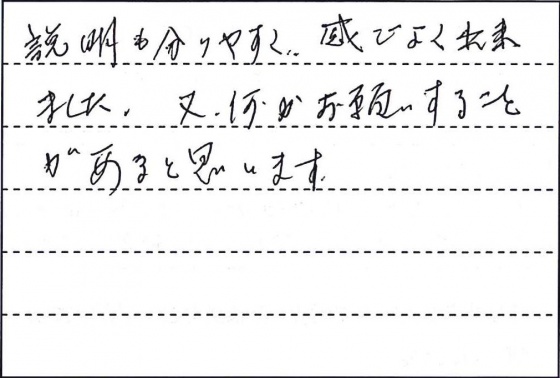 説明も分りやすく、感じよく出来
ました。又、何かお願いすること
があると思います。